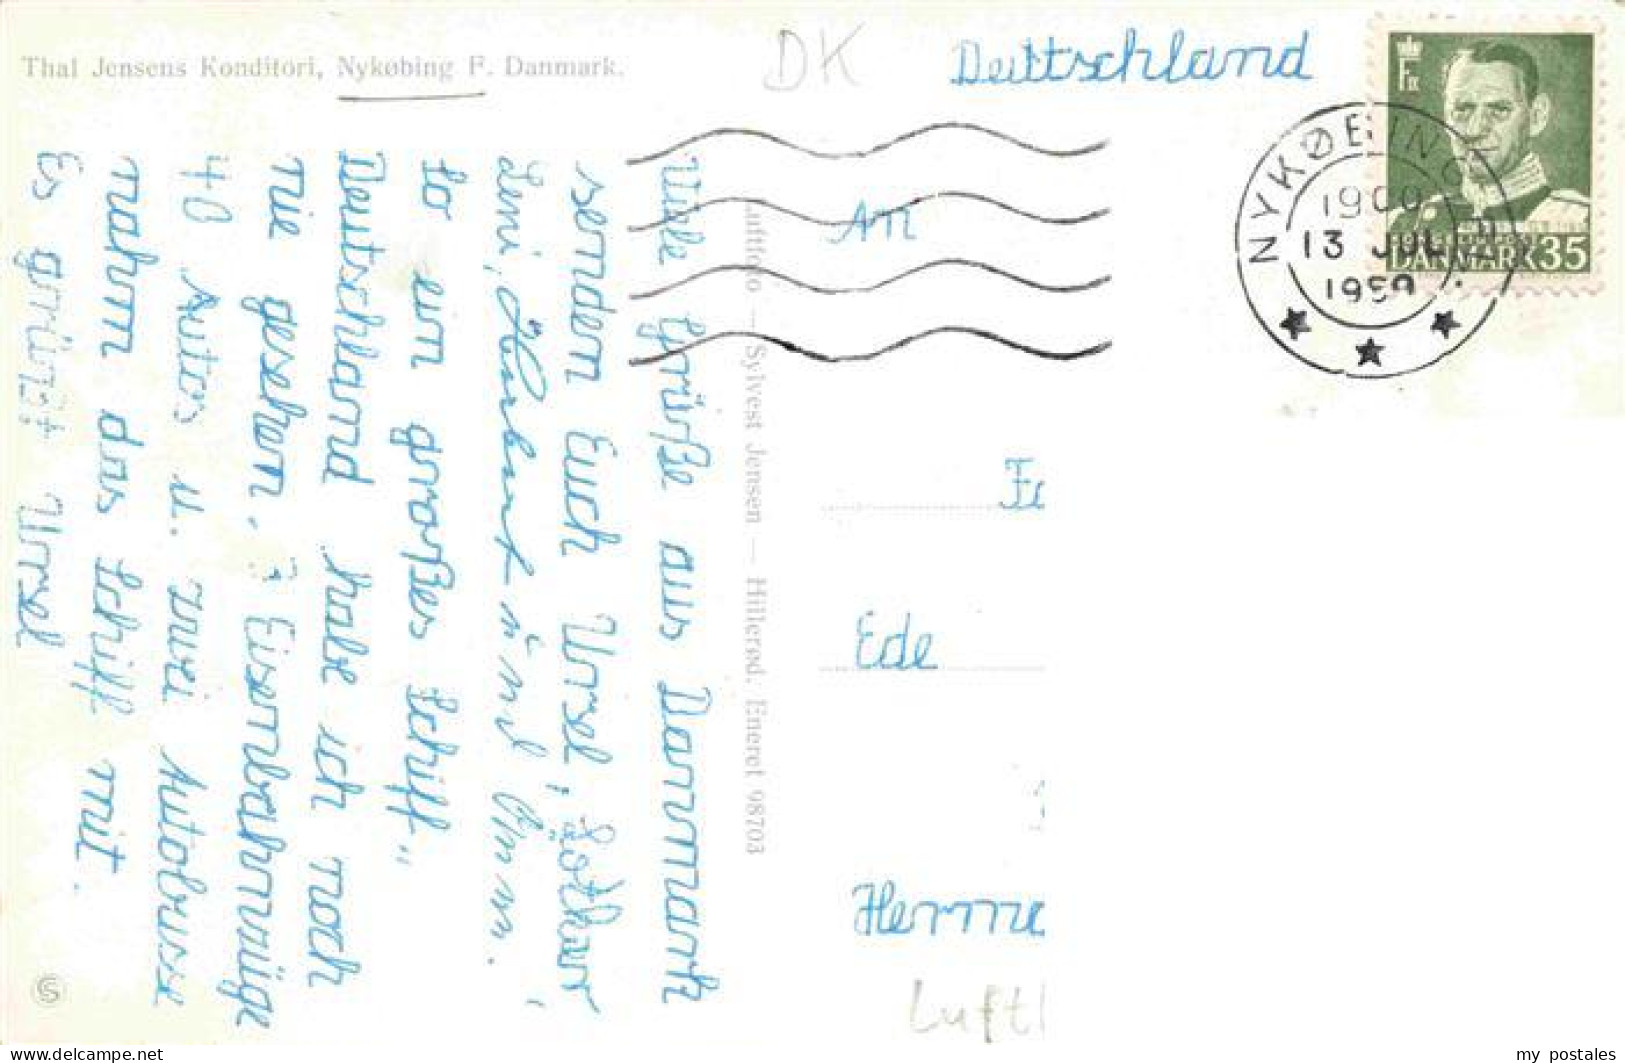 Thal Jensens Konditori, Nykøbing F. Danmark.
DK
Deuttschland
NYKØBING F.
1900
13 JUL
1959
F IX
DANMARK 35
Viele Grüße aus Danmark
senden Euch Ursel, Lothar,
Leni, Herbert und Omm.
So ein großes Schiff"
Deutschland habe ich noch
nie gesehen. 3 Eisenbahnzüge
40 Autos u. zwei Autobusse
nahm das Schiff mit.
Es grüßt Ursel
Luftfoto — Sylvest Jensen — Hillerød. Eneret 98703
An
Fa
Ede
Herma
Luft
my_postales